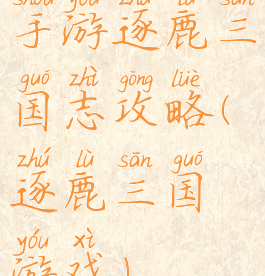 shǒu yóu zhú lù sān
手游逐鹿三
guó zhì gōng lüè
国志攻略(
zhú lù sān guó
逐鹿三国
yóu xì
游戏)